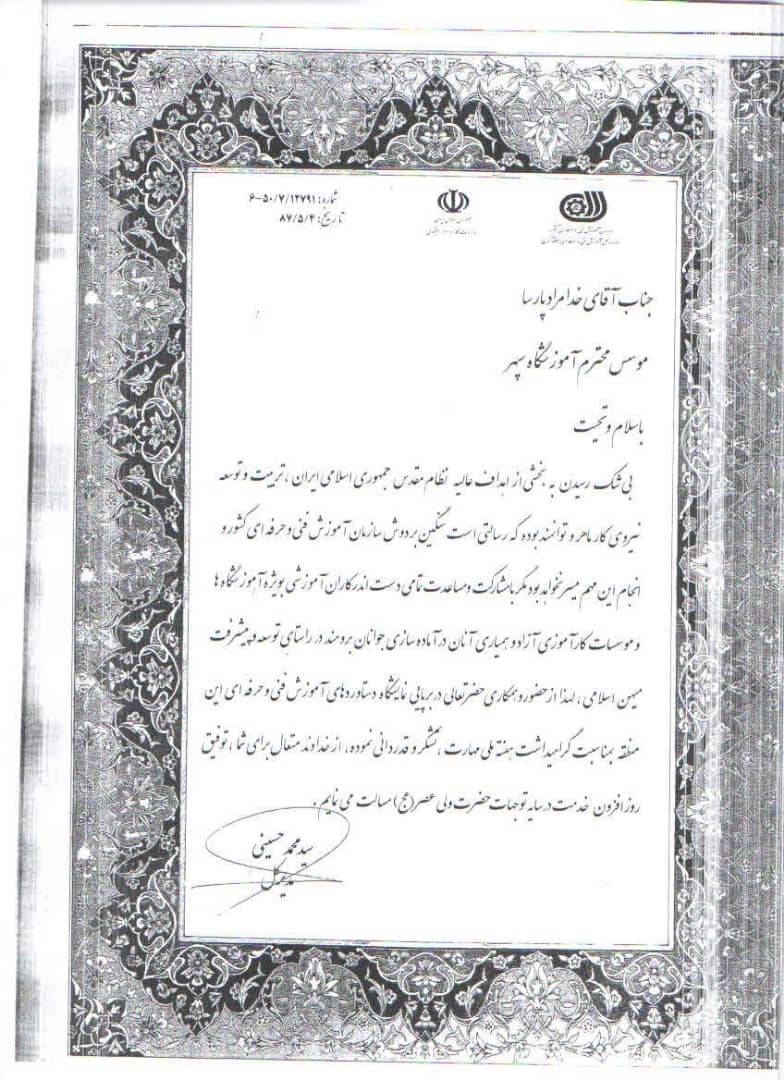 شماره: ۵۰/۷/۱۲۷۹۱-۶
تاریخ: ۸۷/۵/۴
جناب آقای خدامراد پارسا
موسس محترم آموزشگاه سپهر
باسلام و تحیت
بی شک رسیدن به بخشی از اهداف عالیه نظام مقدس جمهوری اسلامی ایران ، تربیت و توسعه
نیروی کار ماهر و توانمند بوده که رسالتی است سنگین بر دوش سازمان آموزش فنی و حرفه ای کشور و
انجام این مهم میسر نخواهد بود مگر با مشارکت و مساعدت تمامی دست اندرکاران آموزشی بویژه آموزشگاه ها
و موسسات کارآموزی آزاد و همیاری آنان در آماده سازی جوانان برومند در راستای توسعه و پیشرفت
میهن اسلامی ، لهذا از حضور و همکاری حضرتعالی در برپایی نمایشگاه دستاوردهای آموزش فنی و حرفه ای این
منطقه بمناسبت گرامیداشت هفته ملی مهارت ، تشکر و قدردانی نموده ، از خداوند متعال برای شما ، توفیق
روز افزون خدمت در سایه توجهات حضرت ولی عصر (عج) مسالت می نمایم .
سید محمد حسینی
مدیرکل